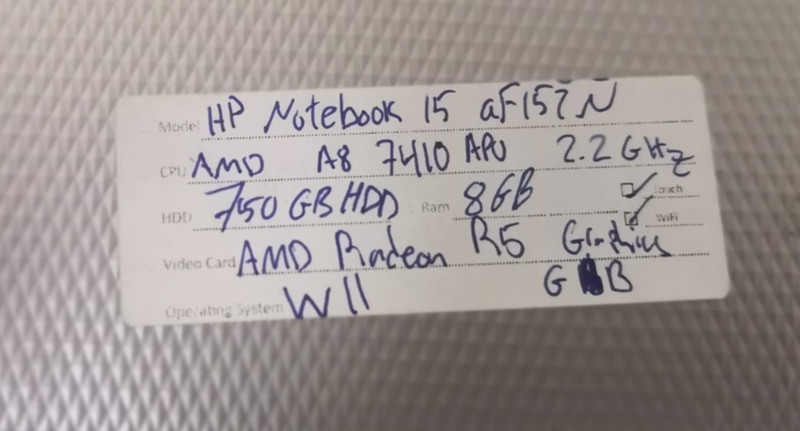 Model HP Notebook 15 aF152N
CPU AMD A8 7410 APU 2.2 GHz
HDD 750 GB HDD Ram 8GB Touch
WiFi
Video Card AMD Radeon R5 Graphics
Operating System W11 G B